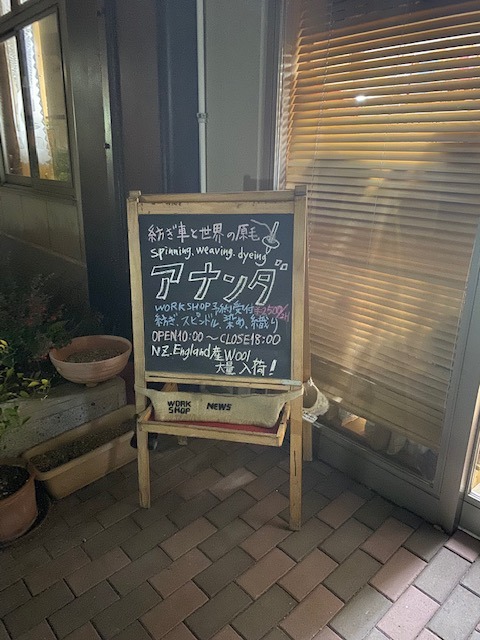 紡ぎ車と世界の原毛
spinning.weaving.dyeing
アナンダ
WORKSHOP予約受付¥2500/2H
紡ぎ、スピンドル、染め、織り
OPEN10:00〜CLOSE18:00
NZ.England産Wool
大量入荷!
WORK SHOP NEWS